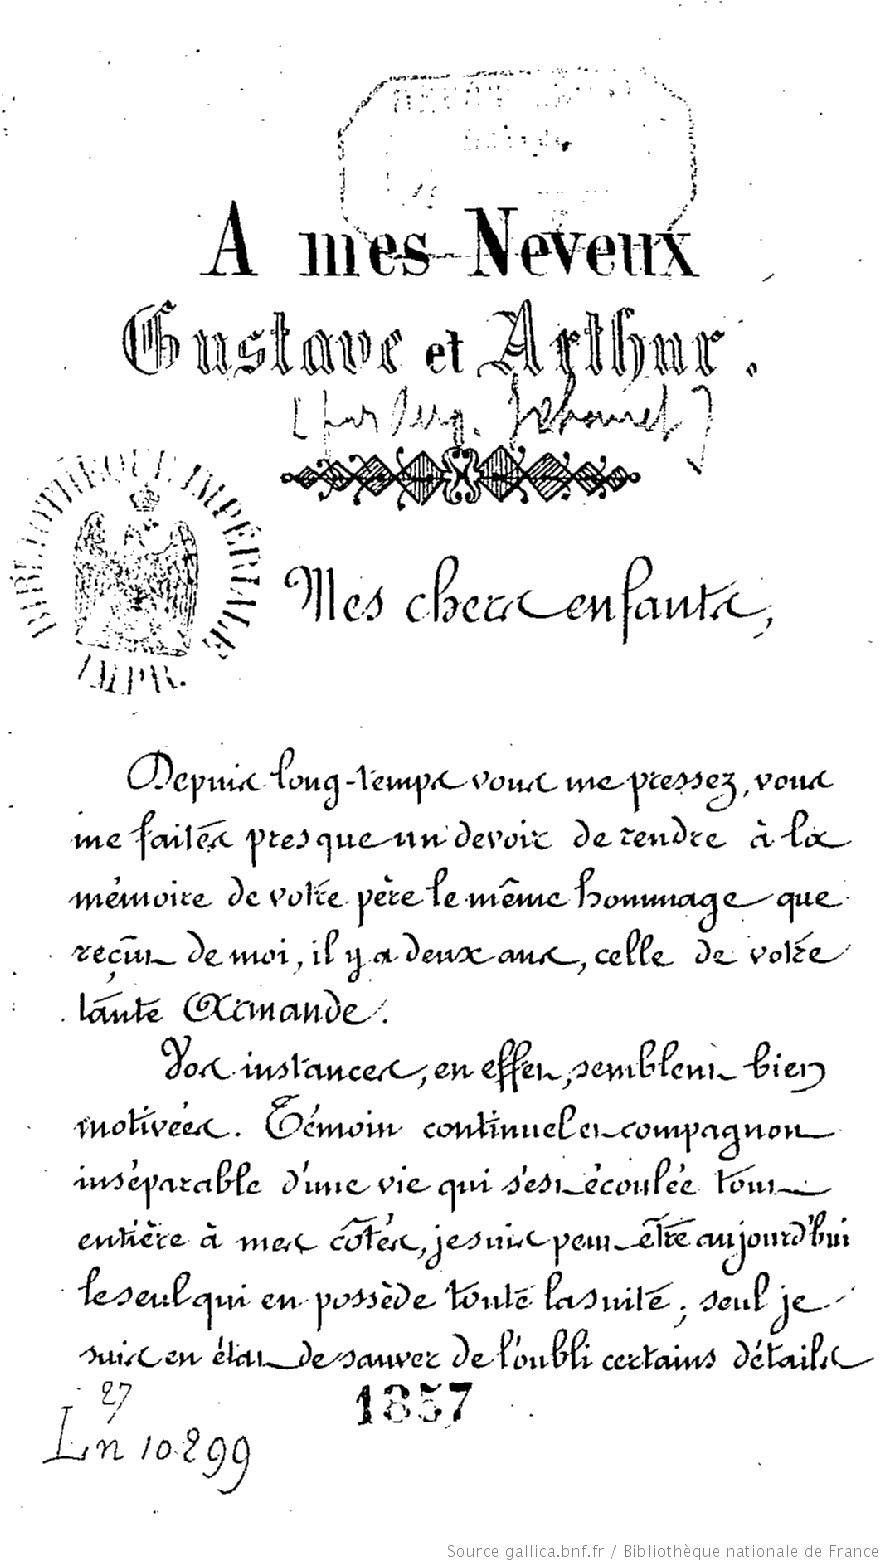 A mes Neveux
Gustave et Arthur.
BIBLIOTHÈQUE IMPÉRIALE
IMPR.
Mes chers enfants,
Depuis long-temps vous me pressez, vous
me faites presque un devoir de rendre à la
mémoire de votre père le même hommage que
reçût de moi, il y a deux ans, celle de votre
tante Armande.
Vos instances, en effet, semblent bien
motivées. Témoin continuel et compagnon
inséparable d'une vie qui s'est écoulée tout
entière à mes côtés, je suis peut être aujourd'hui
le seul qui en possède toute la suite ; seul je
suis en état de sauver de l'oubli certains détails
1857
27
Ln 10299
Source gallica.bnf.fr / Bibliothèque nationale de France